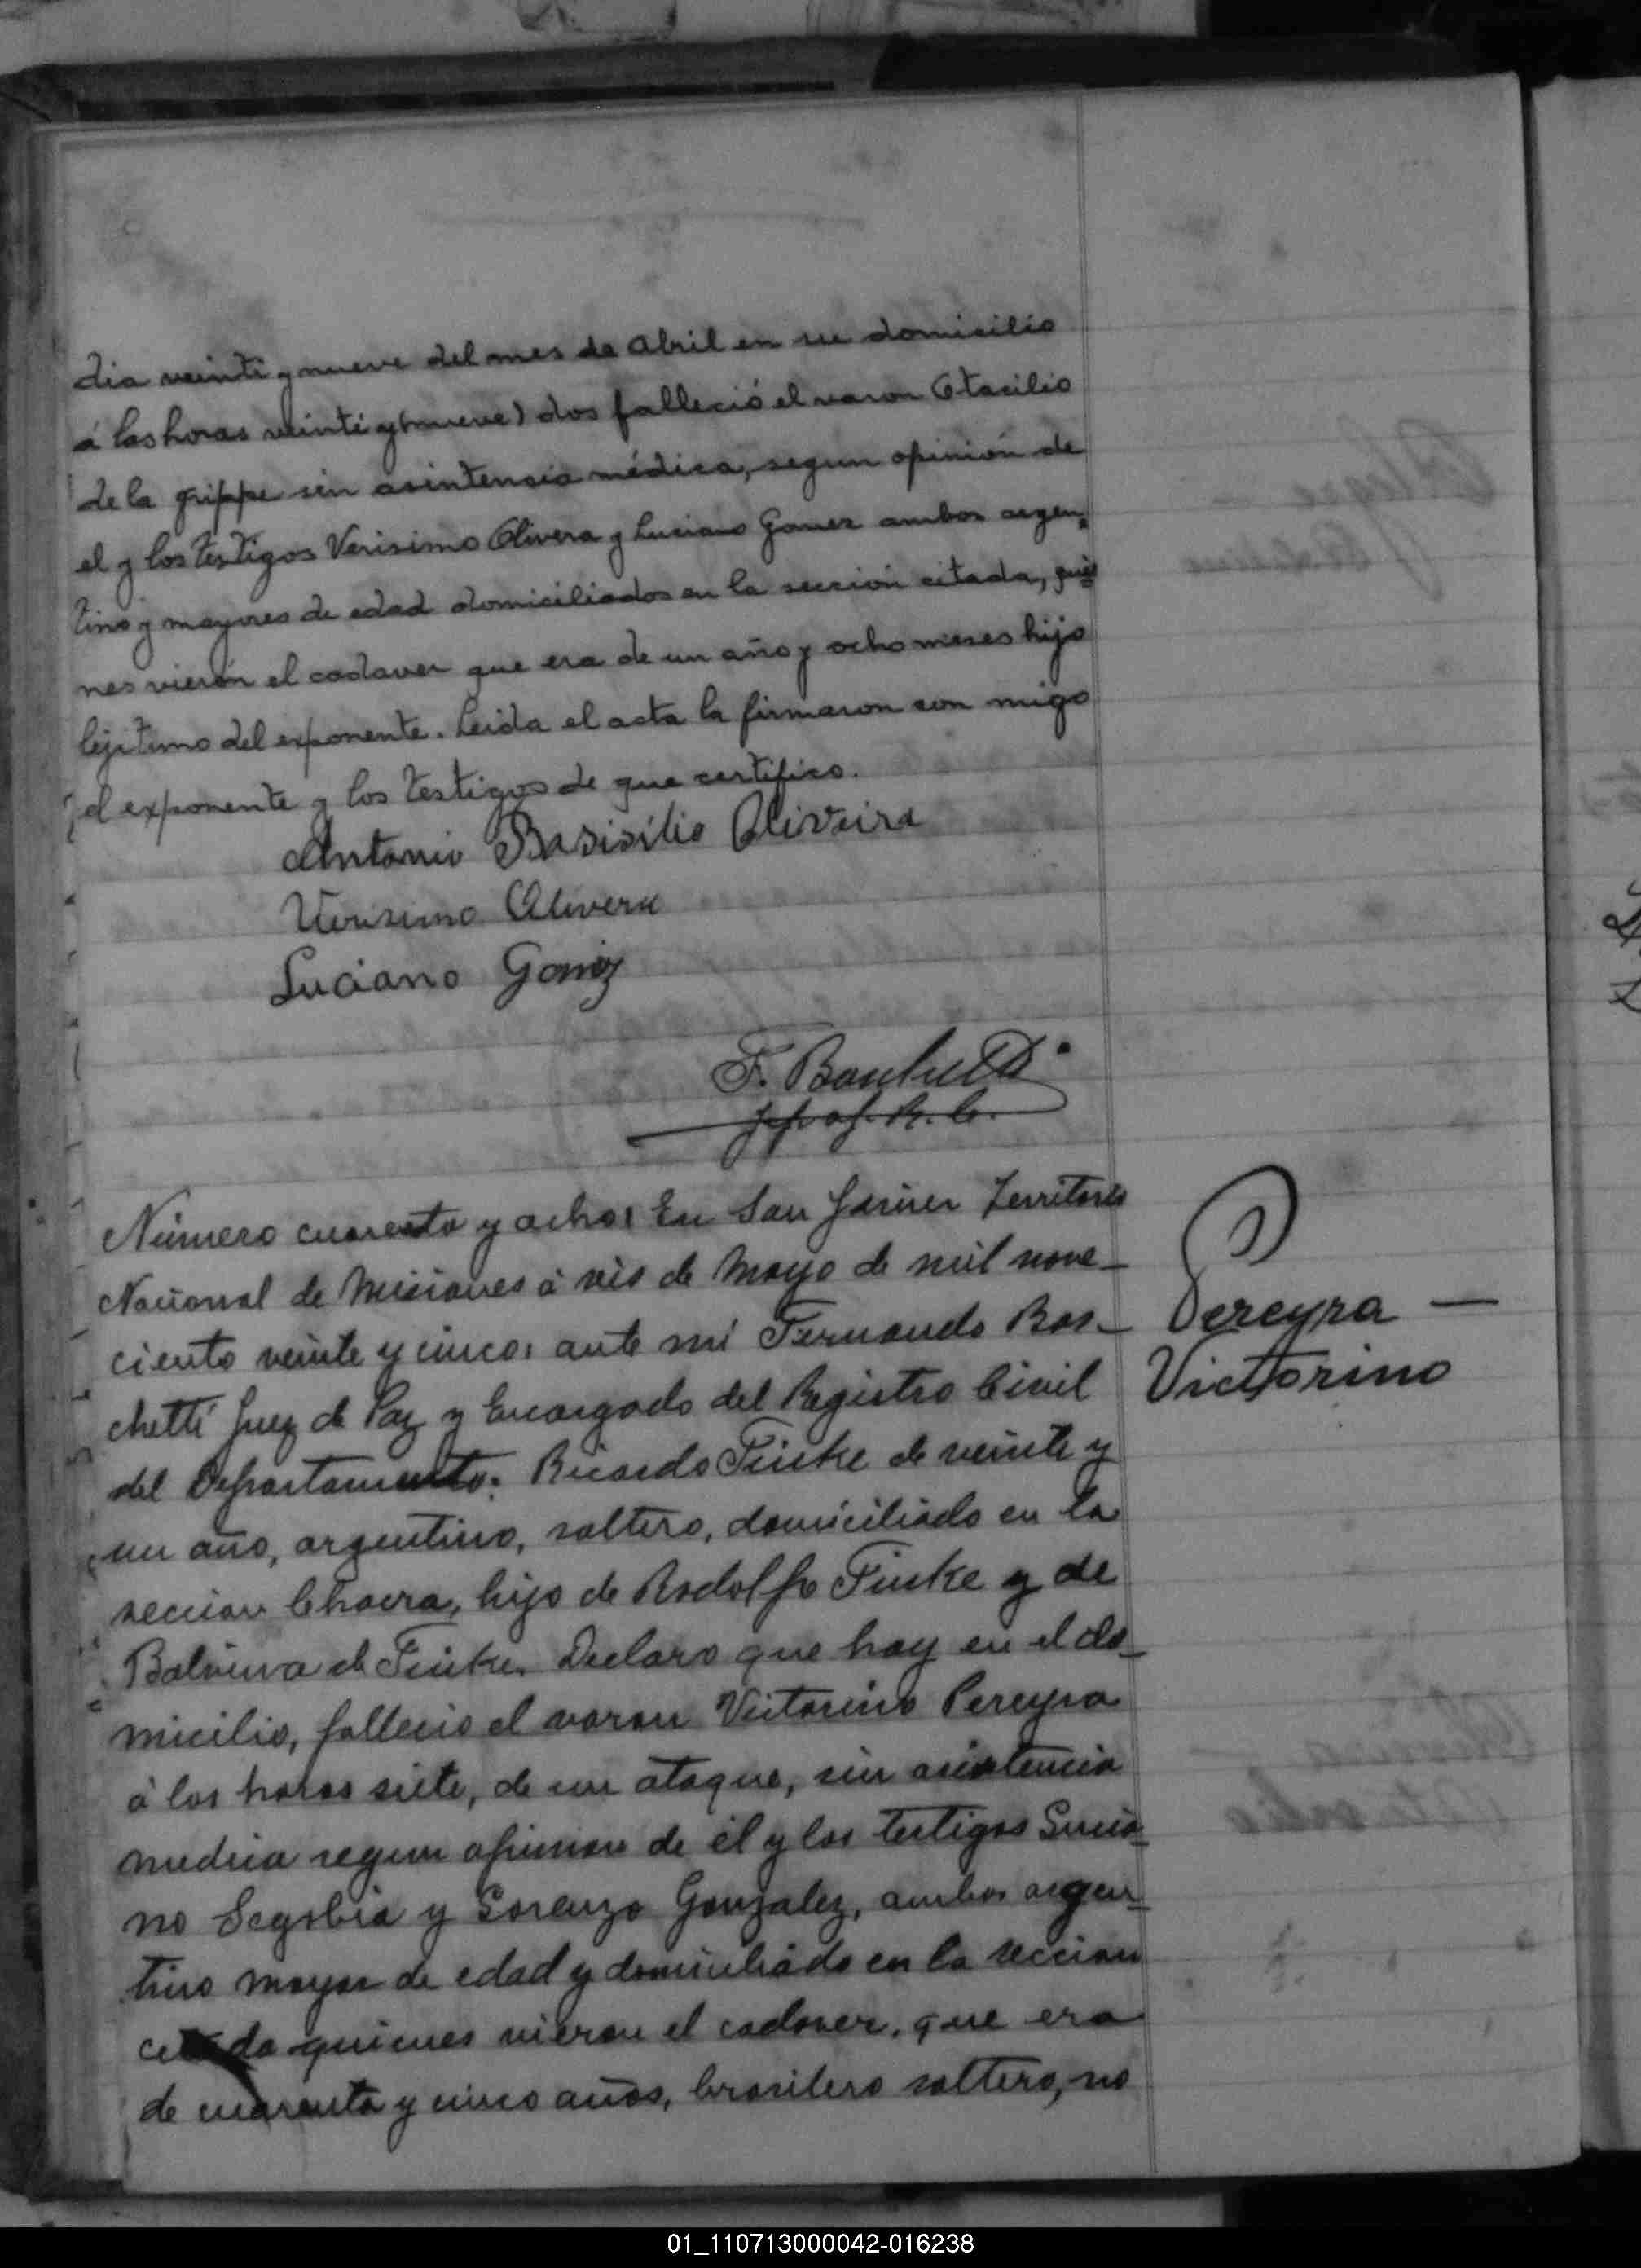 dia veinti y nueve del mes de Abril en su domicilio
á las horas veinti y (nueve) dos falleció el varon Otacilio
de la grippe sin asintencia médica, segun opinión de
el y los testigos Verisimo Olivera y Luciano Gomez ambos argen-
tino y mayores de edad domiciliados en la sección citada, quie
nes vierón el cadaver que era de un año y ocho meses hijo
lejitimo del exponente. Leida el acta la firmaron con migo
el exponente y los testigos de que certifico.
Antonio Basisilio Oliveira
Verisimo Olivera
Luciano Gomez
F. Boschetti
Número cuarenta y ocho: En San Javier Territorio
Nacional de Misiones á seis de Mayo de mil nove-
ciento veinte y cinco: ante mi Fernando Bos-
chetti Juez de Paz y Encargado del Registro Civil
del Departamento: Ricardo Finke de veinte y
un año, argentino, soltero, domiciliado en la
seccion Chacra, hijo de Rodolfo Finke y de
Balvina de Finke. Declaro que hoy en el do-
micilio, fallecio el varon Victorino Pereyra
á las horas siete, de un ataque, sin asistencia
medica segun opinion de él y los testigos Lucia-
no Segobia y Lorenzo Gonzalez, ambos argen-
tino mayor de edad y domiciliado en la seccion
citada quienes vieron el cadaver, que era
de cuarenta y cinco años, brasilero soltero, no
Pereyra —
Victorino
01_110713000042-016238